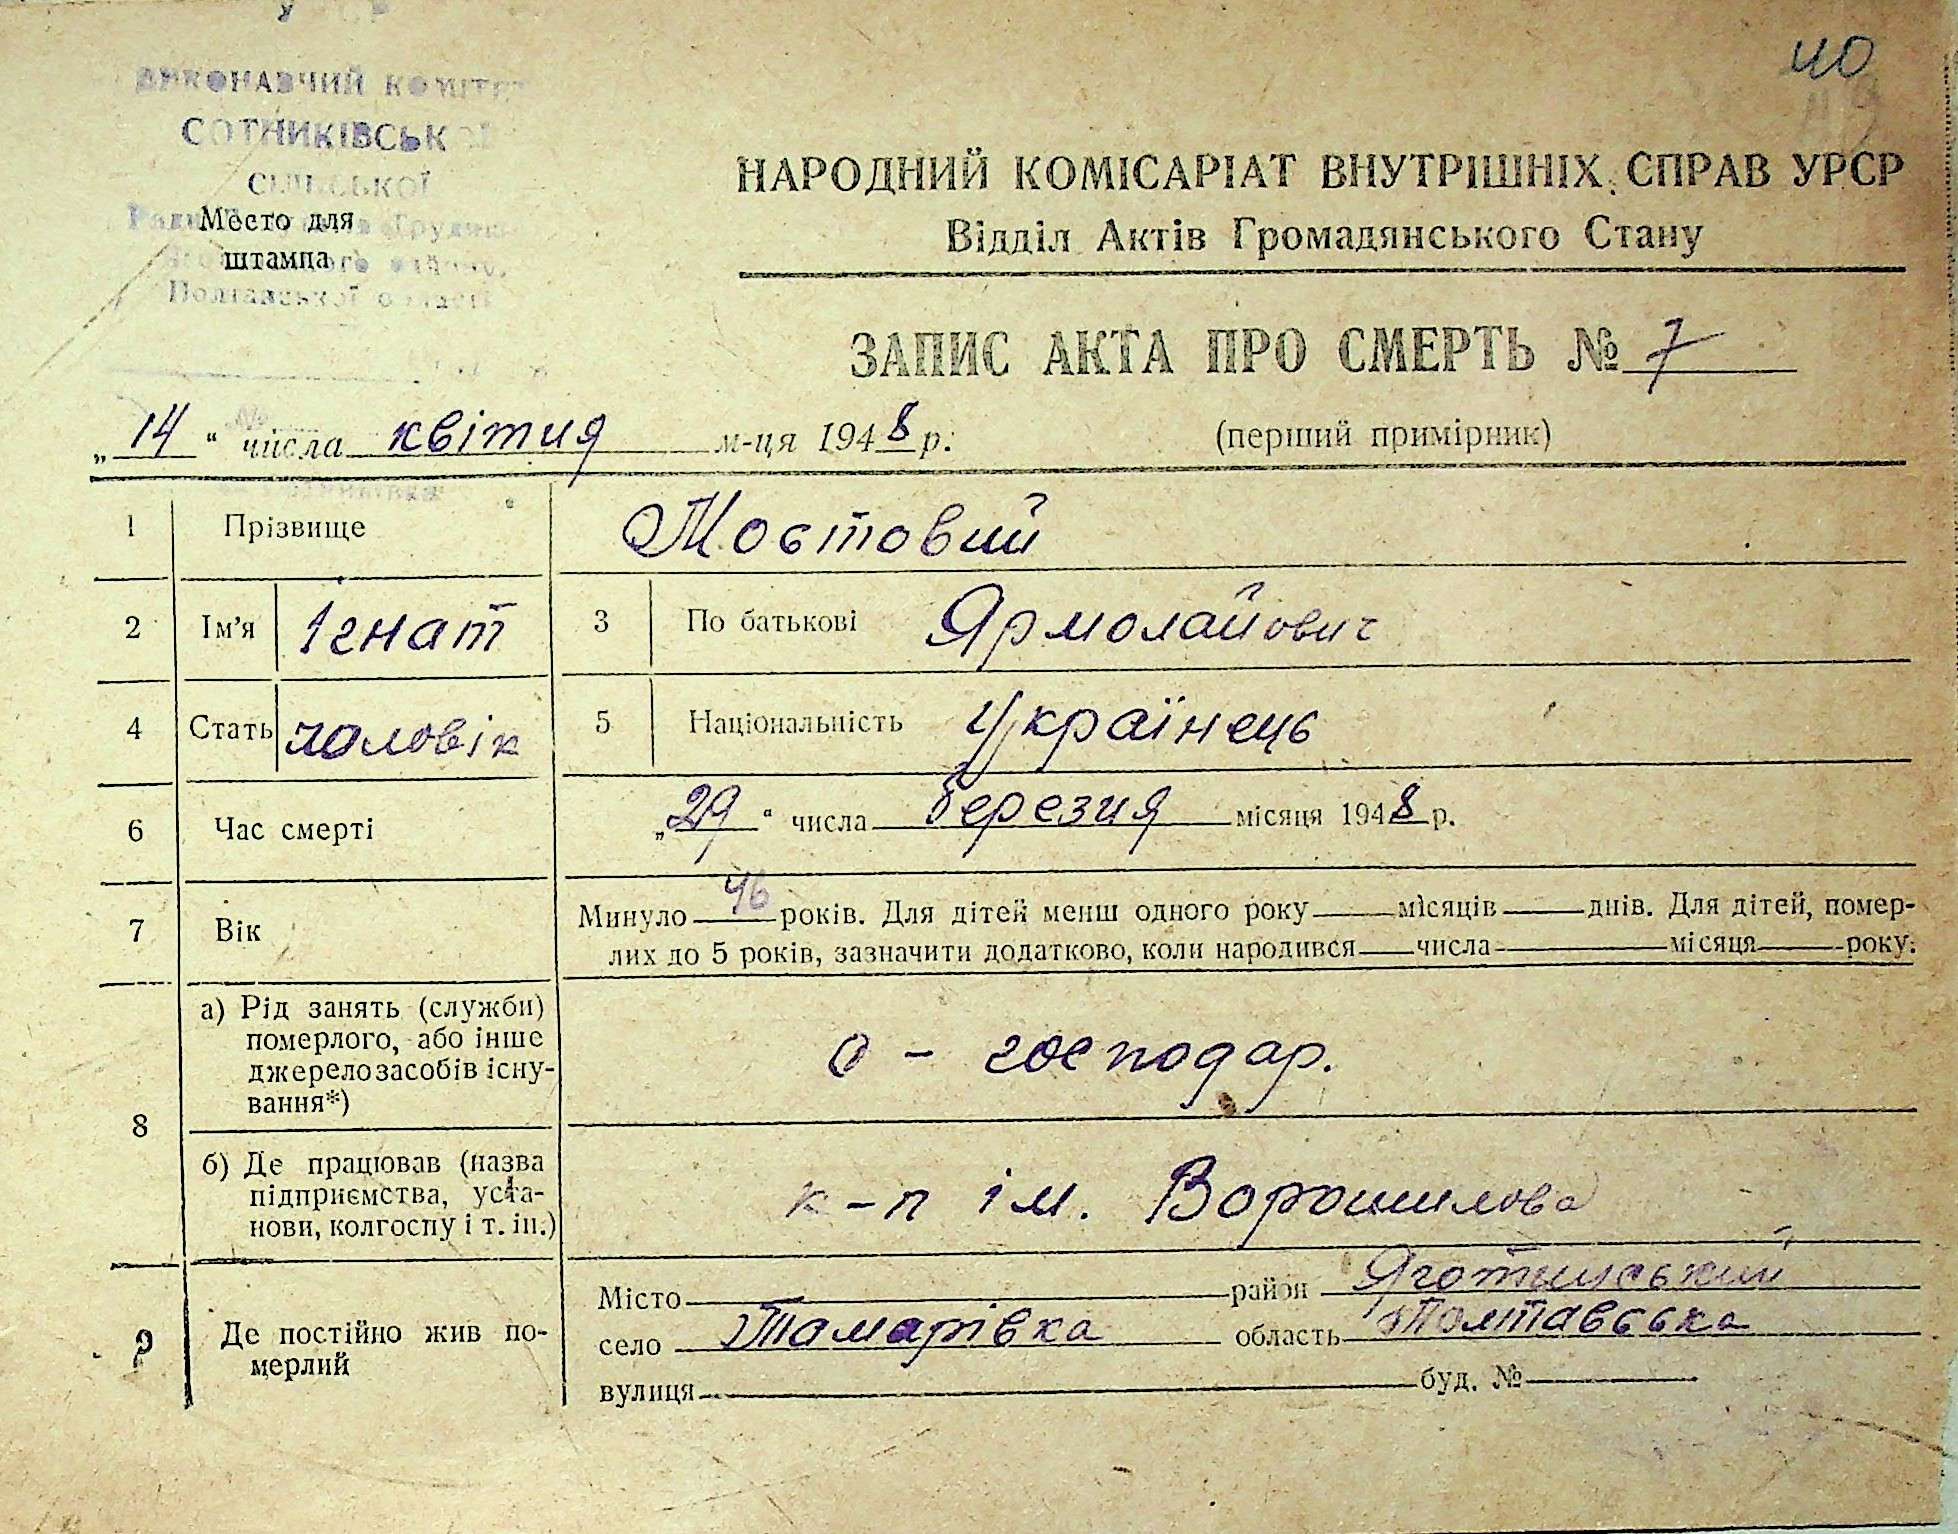 40
ВИКОНАВЧИЙ КОМІТЕТ
СОТНИКІВСЬКОЇ
СІЛЬСЬКОЇ
Ради
Полтавської області
Место для
штампа
НАРОДНИЙ КОМІСАРІАТ ВНУТРІШНІХ СПРАВ УРСР
Відділ Актів Громадянського Стану
ЗАПИС АКТА ПРО СМЕРТЬ № 7
„14“ числа квітня м-ця 1948 р. (перший примірник)
1 Прізвище Мостовий
2 Ім’я Ігнат 3 По батькові Ярмолайович
4 Стать чоловік 5 Національність Українець
6 Час смерті „29“ числа березня місяця 1948 р.
7 Вік Минуло 46 років. Для дітей менш одного року місяців днів. Для дітей, помер-
лих до 5 років, зазначити додатково, коли народився числа місяця року.
8 а) Рід занять (служби)
померлого, або інше
джерело засобів існу-
вання*) о - господар.
б) Де працював (назва
підприємства, уста-
нови, колгоспу і т. ін.) к-п ім. Ворошилова
9 Де постійно жив по-
мерлий
Місто район Яготинський
село Тамарівка область Полтавська
вулиця буд. №